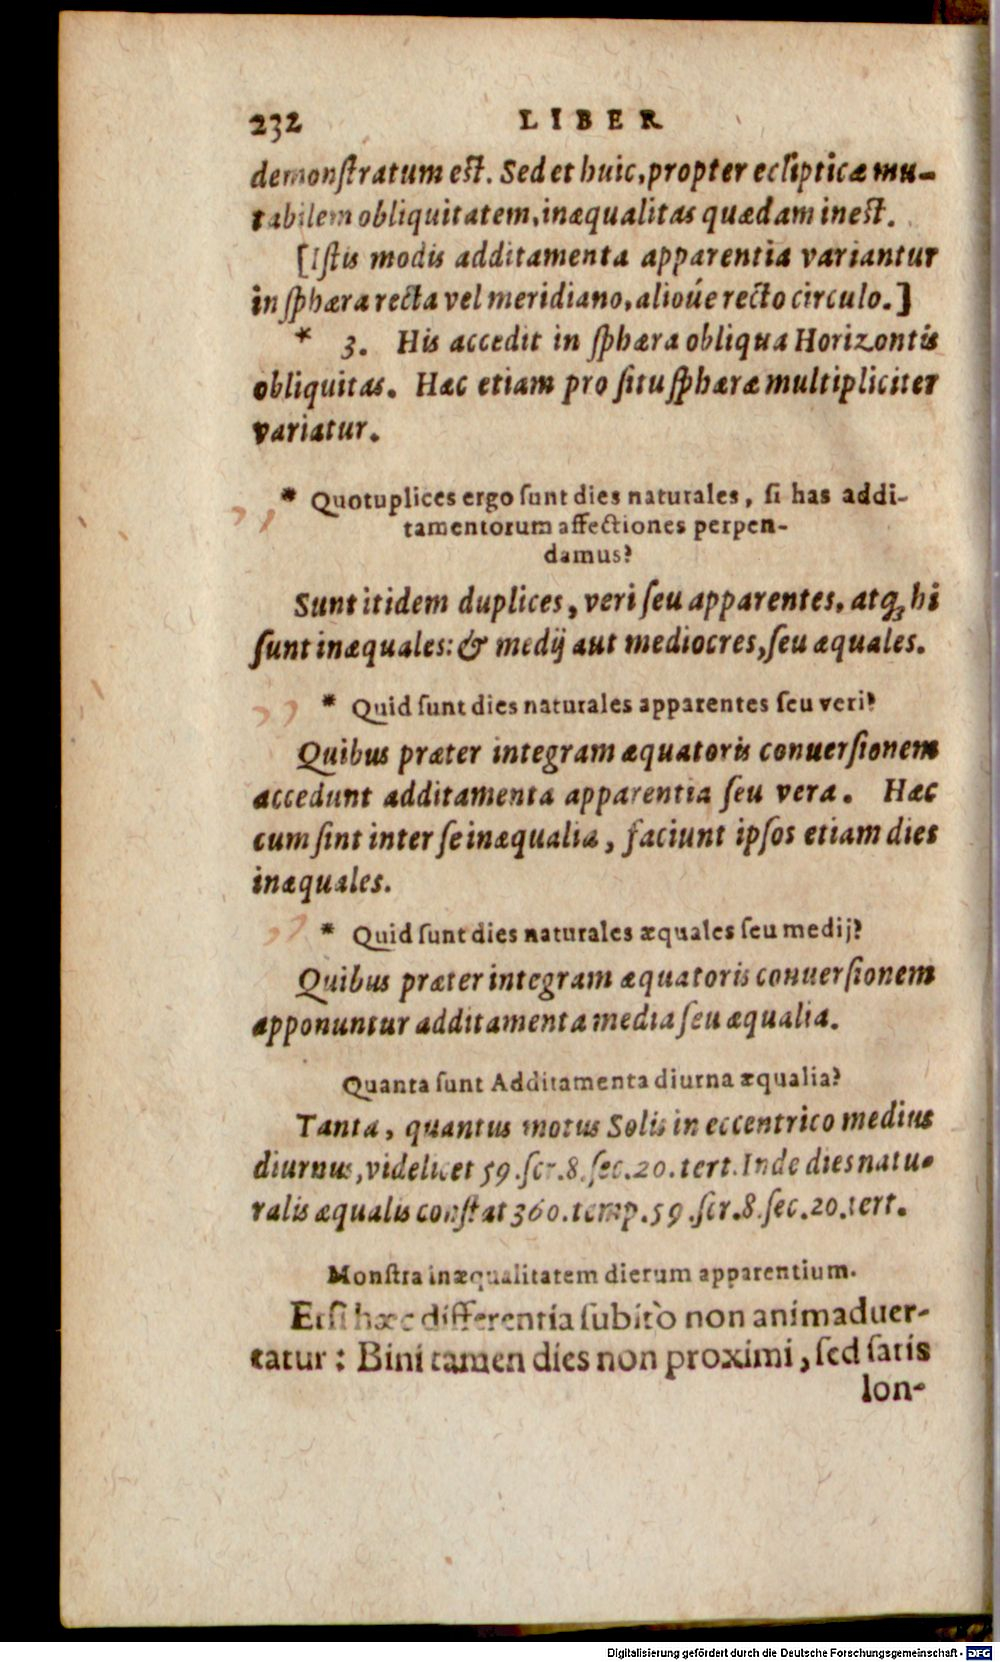 232 LIBER
demonſtratum eſt. Sed et huic, propter eclipticæ mu-
tabilem obliquitatem, inæqualitas quædam ineſt.
[Iſtis modis additamenta apparentia variantur
in ſphæra recta vel meridiano, alioúe recto circulo.]
* 3. His accedit in ſphæra obliqua Horizontis
obliquitas. Hæc etiam pro ſitu ſphæræ multipliciter
variatur.
* Quotuplices ergo ſunt dies naturales, ſi has addi-
tamentorum affectiones perpen-
damus?
Sunt itidem duplices, veri ſeu apparentes, atq; hi
ſunt inæquales: & medij aut mediocres, ſeu æquales.
* Quid ſunt dies naturales apparentes ſeu veri?
Quibus præter integram æquatoris conuerſionem
accedunt additamenta apparentia ſeu vera. Hæc
cum ſint inter ſe inæqualia, faciunt ipſos etiam dies
inæquales.
* Quid ſunt dies naturales æquales ſeu medij?
Quibus præter integram æquatoris conuerſionem
apponuntur additamenta media ſeu æqualia.
Quanta ſunt Additamenta diurna æqualia?
Tanta, quantus motus Solis in eccentrico medius
diurnus, videlicet 59. ſcr. 8. ſec. 20. tert. Inde dies natu-
ralis æqualis conſtat 360. temp. 59. ſcr. 8. ſec. 20. tert.
Monſtra inæqualitatem dierum apparentium.
Etſi hæc differentia ſubitò non animaduer-
tatur: Bini tamen dies non proximi, ſed ſatis
lon-
Digitalisierung gefördert durch die Deutsche Forschungsgemeinschaft - DFG